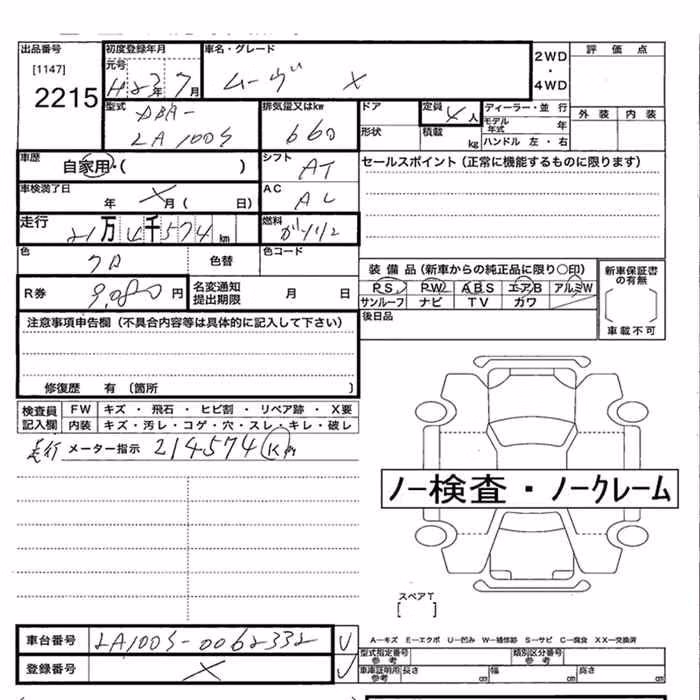 出品番号 初度登録年月 車名・グレード 2WD ・ 4WD 評価点
[1147] 元号
2215 H23年7月 ムーヴ X
型式 排気量又はkw ドア 定員 4人 ディーラー・並 行 外装 内装
DBA- モデル年式 年
LA100S 660 形状 積載 kg ハンドル 左・右
車歴 自家用・( ) シフト AT セールスポイント(正常に機能するものに限ります)
車検満了日 年 X 月( 日) AC AC
走行 21万4千574km 燃料 ガソリン
色 クロ 色替 色コード 装備品(新車からの純正品に限り○印) 新車保証書の有無
R券 9,080円 名変通知提出期限 月 日 PS PW ABS エアB アルミW
サンルーフ ナビ TV カワ 車載不可
注意事項申告欄(不具合内容等は具体的に記入して下さい) 後日品
修復歴 有 〔箇所 〕
検査員記入欄 FW キズ・飛石・ヒビ割・リペア跡・X要
内装 キズ・汚レ・コゲ・穴・スレ・キレ・破レ
走行 メーター指示 214574km
ノー検査・ノークレーム
スペアT
[ ]
車台番号 LA100S-0062332 A―キズ E―エクボ U―凹み W―補修跡 S―サビ C―腐食 XX―交換済
型式指定番号参考 類別区分番号参考
登録番号 X 車庫証明用参考 長さ cm 幅 cm 高さ cm